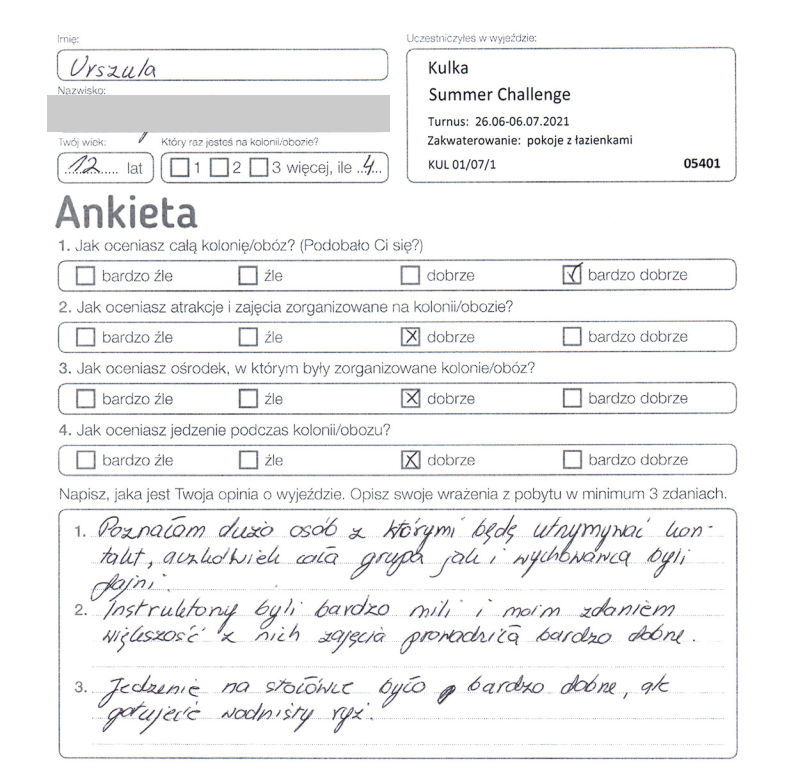 Imię:
Urszula
Nazwisko:
Twój wiek:
12 lat
Który raz jesteś na kolonii/obozie?
1 2 3 więcej, ile 4
Uczestniczyłeś w wyjeździe:
Kulka
Summer Challenge
Turnus: 26.06-06.07.2021
Zakwaterowanie: pokoje z łazienkami
KUL 01/07/1 05401
Ankieta
1. Jak oceniasz całą kolonię/obóz? (Podobało Ci się?)
bardzo źle źle dobrze bardzo dobrze
2. Jak oceniasz atrakcje i zajęcia zorganizowane na kolonii/obozie?
bardzo źle źle dobrze bardzo dobrze
3. Jak oceniasz ośrodek, w którym były zorganizowane kolonie/obóz?
bardzo źle źle dobrze bardzo dobrze
4. Jak oceniasz jedzenie podczas kolonii/obozu?
bardzo źle źle dobrze bardzo dobrze
Napisz, jaka jest Twoja opinia o wyjeździe. Opisz swoje wrażenia z pobytu w minimum 3 zdaniach.
1. Poznałam dużo osób z którymi będę utrzymywać kon-
takt, aczkolwiek cała grupa jak i wychowawca byli
fajni.
2. Instruktorzy byli bardzo mili i moim zdaniem
większość z nich zajęcia prowadziła bardzo dobrze.
3. Jedzenie na stołówce było bardzo dobre, ale
gotujecie wodnisty ryż.